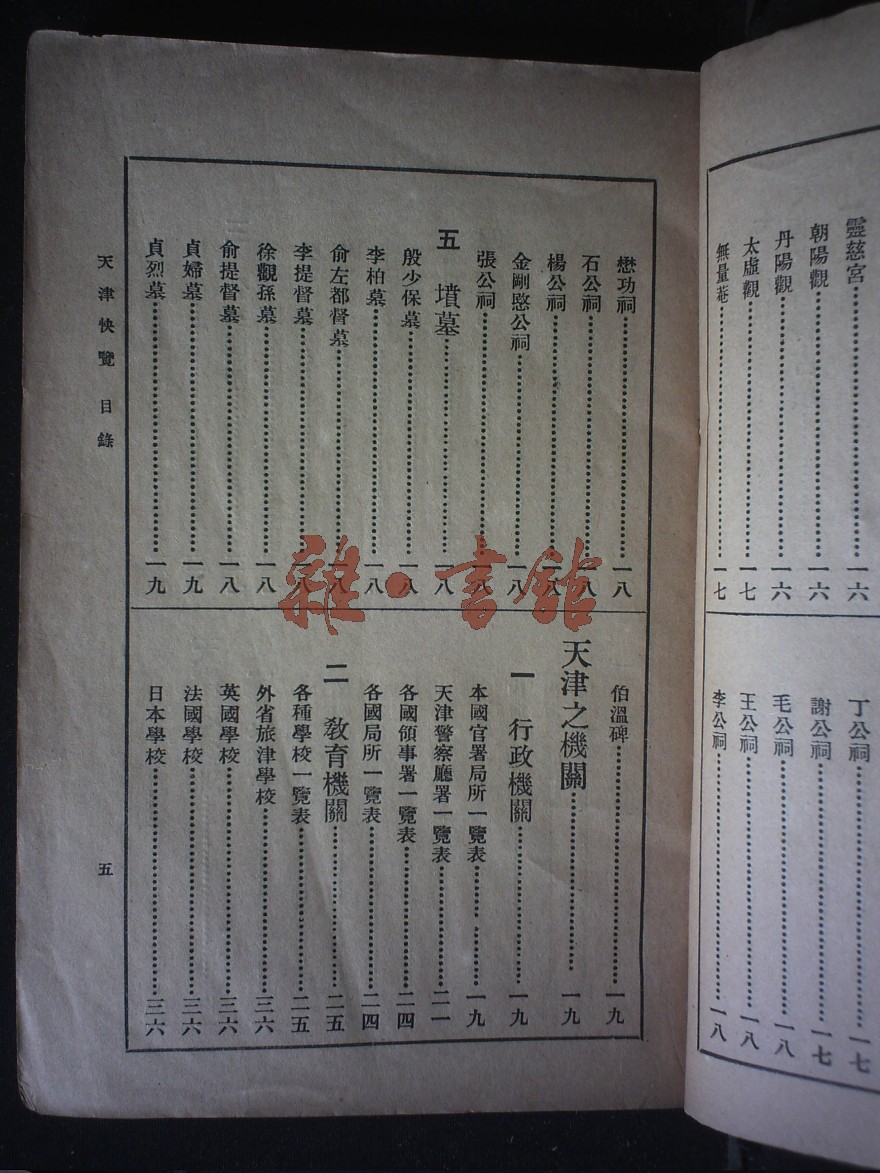 靈慈宮⋯⋯一六
朝陽觀⋯⋯一六
丹陽觀⋯⋯一六
太虛觀⋯⋯一七
無量菴⋯⋯一七
丁公祠⋯⋯一七
謝公祠⋯⋯一七
毛公祠⋯⋯一八
王公祠⋯⋯一八
李公祠⋯⋯一八
懋功祠⋯⋯一八
石公祠⋯⋯一八
楊公祠⋯⋯一八
金剛愍公祠⋯⋯一八
張公祠⋯⋯一八
五 墳墓⋯⋯一八
殷少保墓⋯⋯一八
李柏墓⋯⋯一八
俞左都督墓⋯⋯一八
李提督墓⋯⋯一八
徐觀孫墓⋯⋯一八
俞提督墓⋯⋯一八
貞婦墓⋯⋯一九
貞烈墓⋯⋯一九
伯溫碑⋯⋯一九
天津之機關⋯⋯一九
一 行政機關⋯⋯一九
本國官署局所一覽表⋯⋯一九
天津警察廳署一覽表⋯⋯二一
各國領事署一覽表⋯⋯二四
各國局所一覽表⋯⋯二四
二 教育機關⋯⋯二五
各種學校一覽表⋯⋯二五
外省旅津學校⋯⋯三六
英國學校⋯⋯三六
法國學校⋯⋯三六
日本學校⋯⋯三六
天津快覽 目錄
五
雜·書館